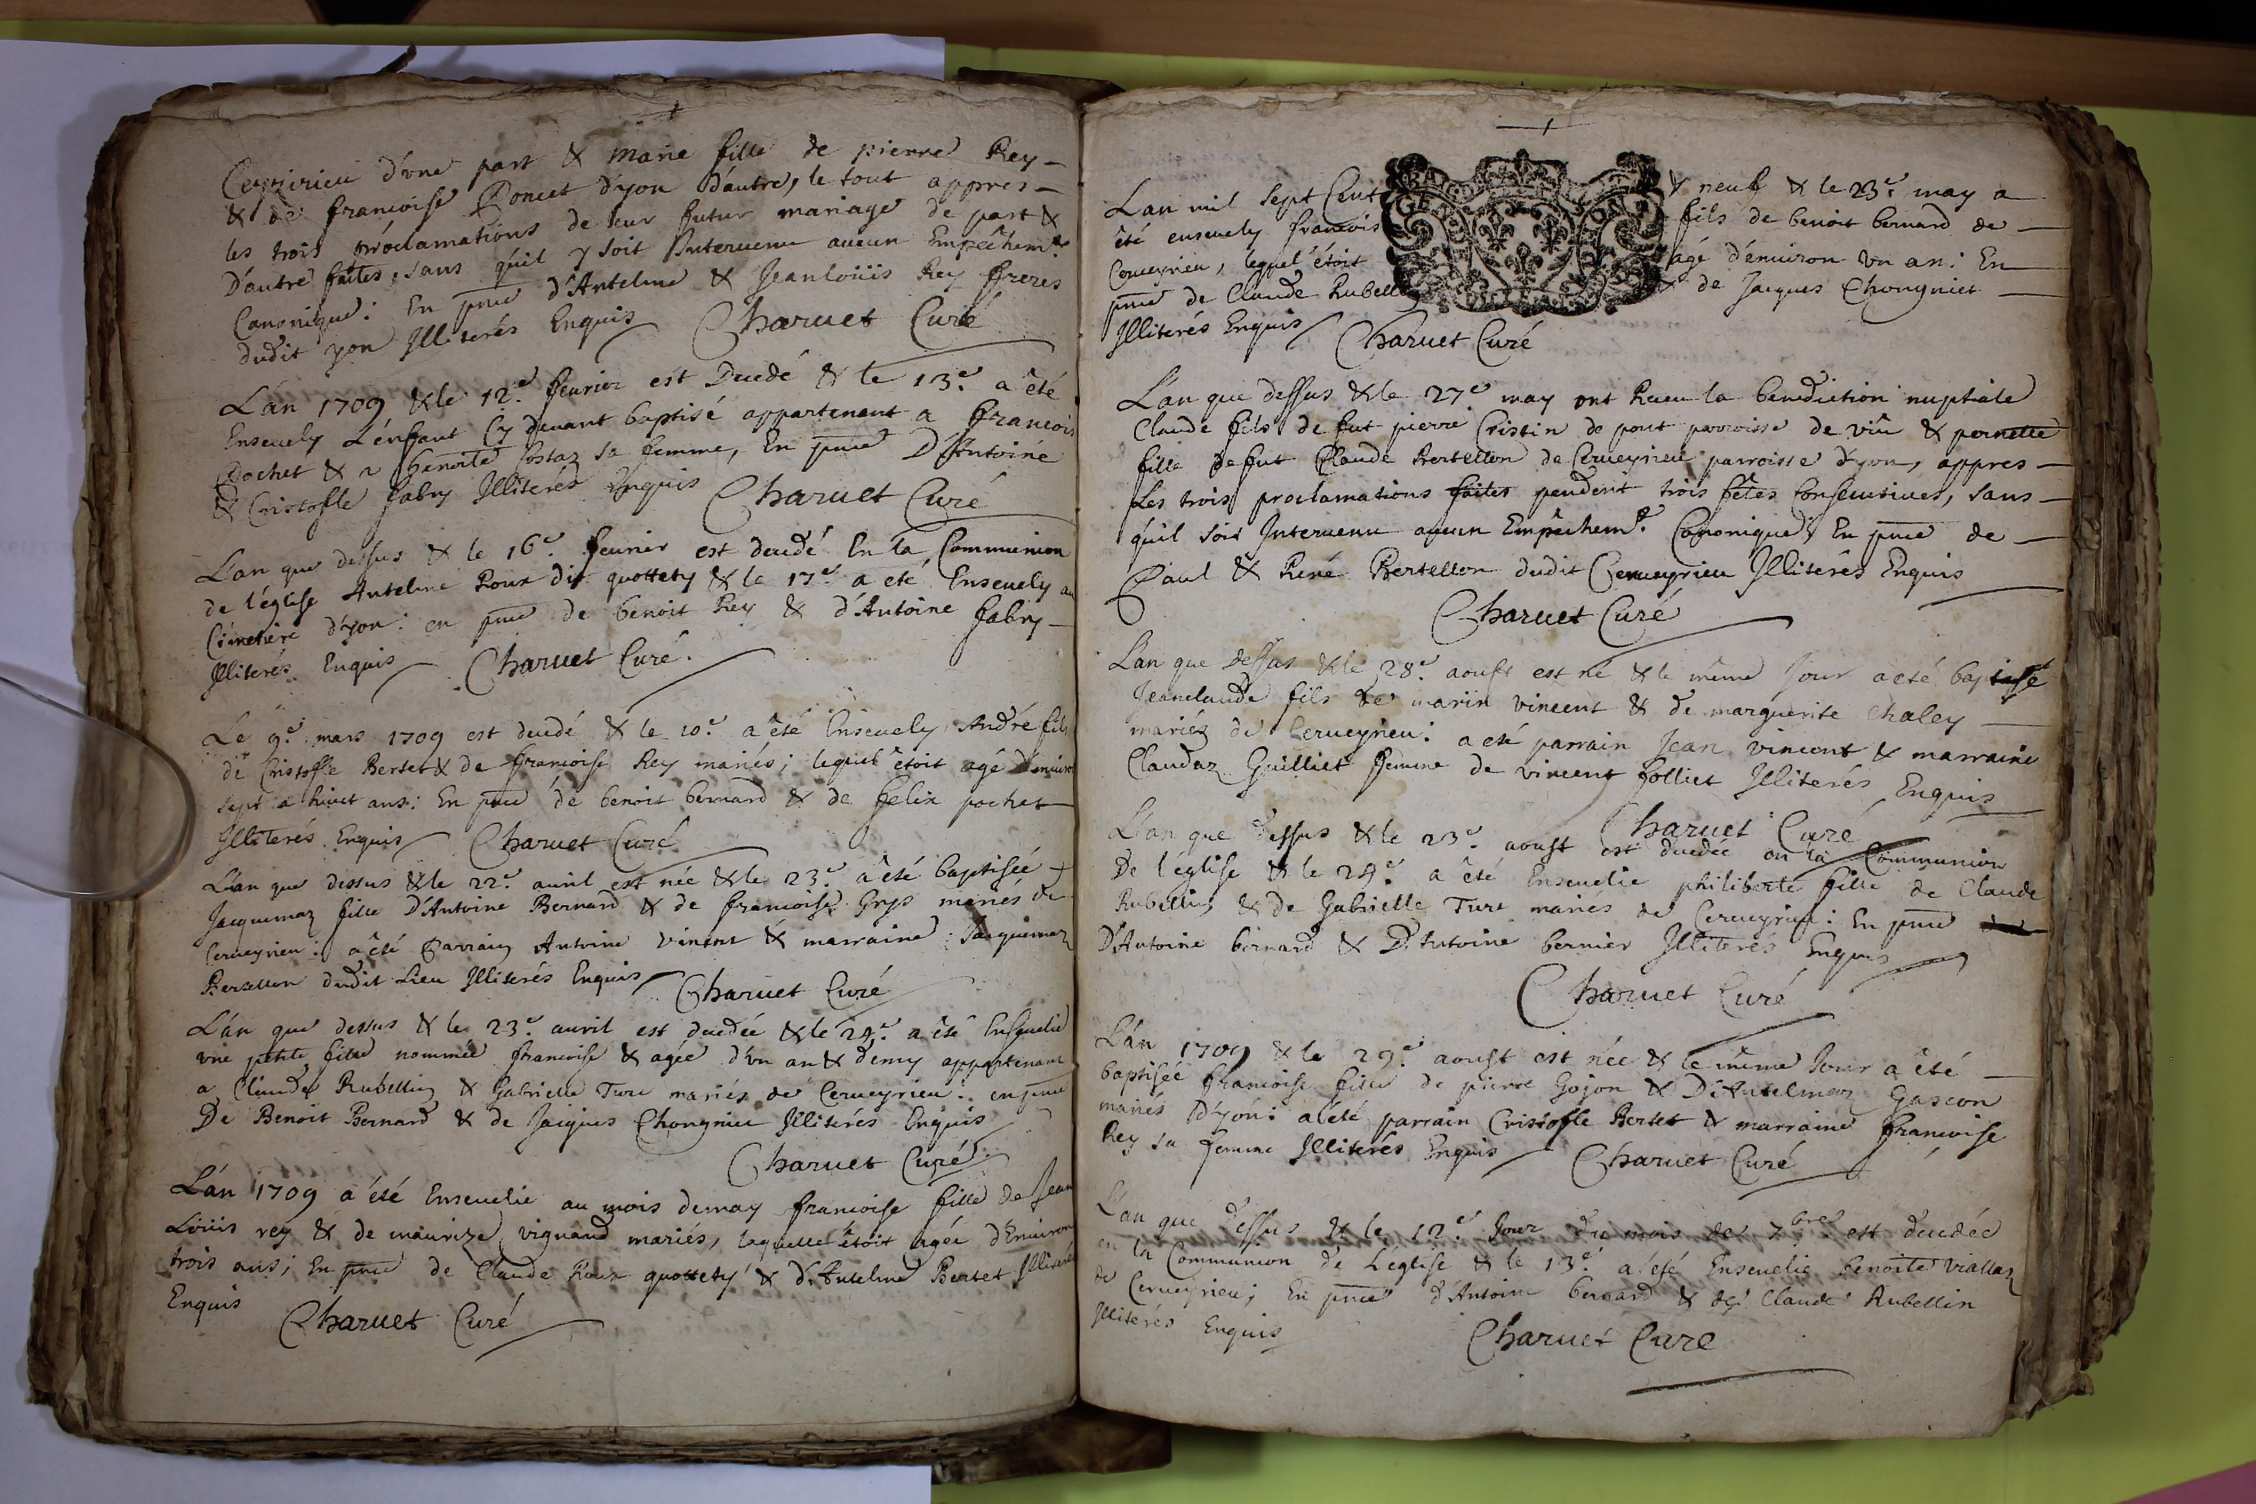 Ceyzirieu d'une part & Marie fille de pierre Rey -
& de francoise Poncet d'yon d'autre, le tout appres -
les trois proclamations de leur futur mariage de part &
D'autre faites, sans quil y soit Interuenu aucun Empêchemt
Canonique : En pnce d'Antelme & Jeanloüis Rey freres
dudit yon Illiterés Enquis Charuet Curé
L'án 1709 & le 12.e feurier est Decedé & le 13.e a êté
Enseuely L'énfant Cy deuant baptisé appartenant a francois
Pochet & a benoite sa femme, En pnce D'Antoine
& Cristofle fabry Illiterés Enquis Charuet Curé
L'an que dessus & le 16.e feurier est decedé En la Communion
de l'église Antelme Roux dit quottety & le 17.e a eté Enseuely au
Cimetiere d'yon : en pnce de benoit Rey & d'Antoine fabry -
Illiterés Enquis Charuet Curé.
Le 9.e mars 1709 est decedé & le 10.e a êté Enseuely André fils
de Cristofle Bertet & de francoise Rey mariés ; lequel étoit agé d'enuiron
sept a huict ans : En pnce de benoit bernard & de felix pochet
Illiterés Enquis Charuet Curé
L'an que dessus & le 22.e auril est née & le 23.e a êté baptisée +
Jacquemaz fille D'Antoine Bernard & de francoise Grys mariés de
Cerueyrieu : a êté Parrain Antoine Vincent & marraine Jacquemaz
Bertellon dudit Lieu Illiterés Enquis Charuet Curé
L'an que dessus & le 23.e auril est decedée & le 24.e a êté Enseuelie
vne petite fille nommée francoise & agée d'vn an & demy appartenant
a Claude Rubellin & Gabrielle Ture mariés de Cerueyrieu : en pnce
De Benoit Bernard & de Jaiques Chongniet Illiterés Enquis
Charuet Curé
L'án 1709 a été Enseuelie au mois demay francoise fille de Jean
Loüis rey & de maurize vignand mariés, laquelle étoit agée d'Enuiron
trois ans ; En pnce de Claude Roux quottety & d'Antelme Bertet Illiterés
Enquis Charuet Curé
L'an mil Sept Cent & neuf & le 23.e may a
êté enseuely francois fils de benoit bernard de -
Cerueyrieu, lequel étoit agé d'enuiron vn an : En -
pnce de Claude Rubellin & de Jacques Chongniet -
Illiterés Enquis Charuet Curé
GEN
L'an que dessus & le 27.e may ont Receu la benediction nuptiale
Claude fils de fut pierre Cristin de pont parroisse de viû & pernette
fille de fut Claude Bertellon de Cerueyrieu parroisse d'yon, appres -
Les trois proclamations faites pendent trois fêtes Consecutiues, sans -
qu'il soit Interuenu aucun Empêchemt. Canonique ; En pnce de -
Paul & René Bertellon dudit Cerueyrieu Illiterés Enquis
Charuet Curé
L'an que dessus & le 28.e aoust est né & le même Jour a eté baptisé
Jeanclaude fils de marin vincent & de marguerite chaley -
mariéz de Cerueyrieu : a eté parrain Jean vincent & marraine
Claudaz Guilliet femme de vincent folliet Illiterés Enquis
Charuet Curé
L'an que dessus & le 23.e aoust est decedée en la Communion
De l'église & le 24.e a êté Enseuelie philiberte fille de Claude
Rubellin & de Gabrielle Ture mariés de Cerueyrieu : En pnce
D'Antoine bernard & D'Antoine bernier Illiterés Enquis
Charuet Curé
L'án 1709 & le 29.e aoust est née & le même Jour a êté -
baptisée francoise fille de pierre Gojon & D'Antelmaz Gascon
mariés D'yon : a été parrain Cristofle Bertet & marraine francoise
Rey sa femme Illiterés Enquis Charuet Curé
L'an que dessus & le 12.e Jour du mois de 7.bre est decedée
en la Communion de L'église & le 13.e a été Enseuelie benoite viallaz
de Cerueyrieu ; En pnce d'Antoine bernard & de Claude Rubellin
Illiterés Enquis Charuet Curé